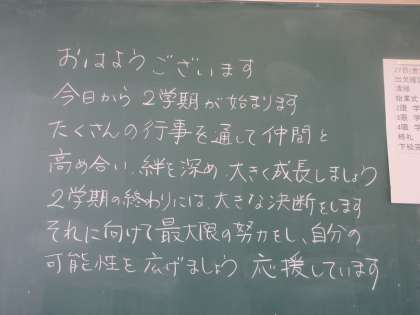 おはようございます
今日から2学期が始まります
たくさんの行事を通して仲間と
高め合い、絆を深め、大きく成長しましょう
2学期の終わりには、大きな決断をします
それに向けて最大限の努力をし、自分の
可能性を広げましょう 応援しています
清掃
始業式
終礼